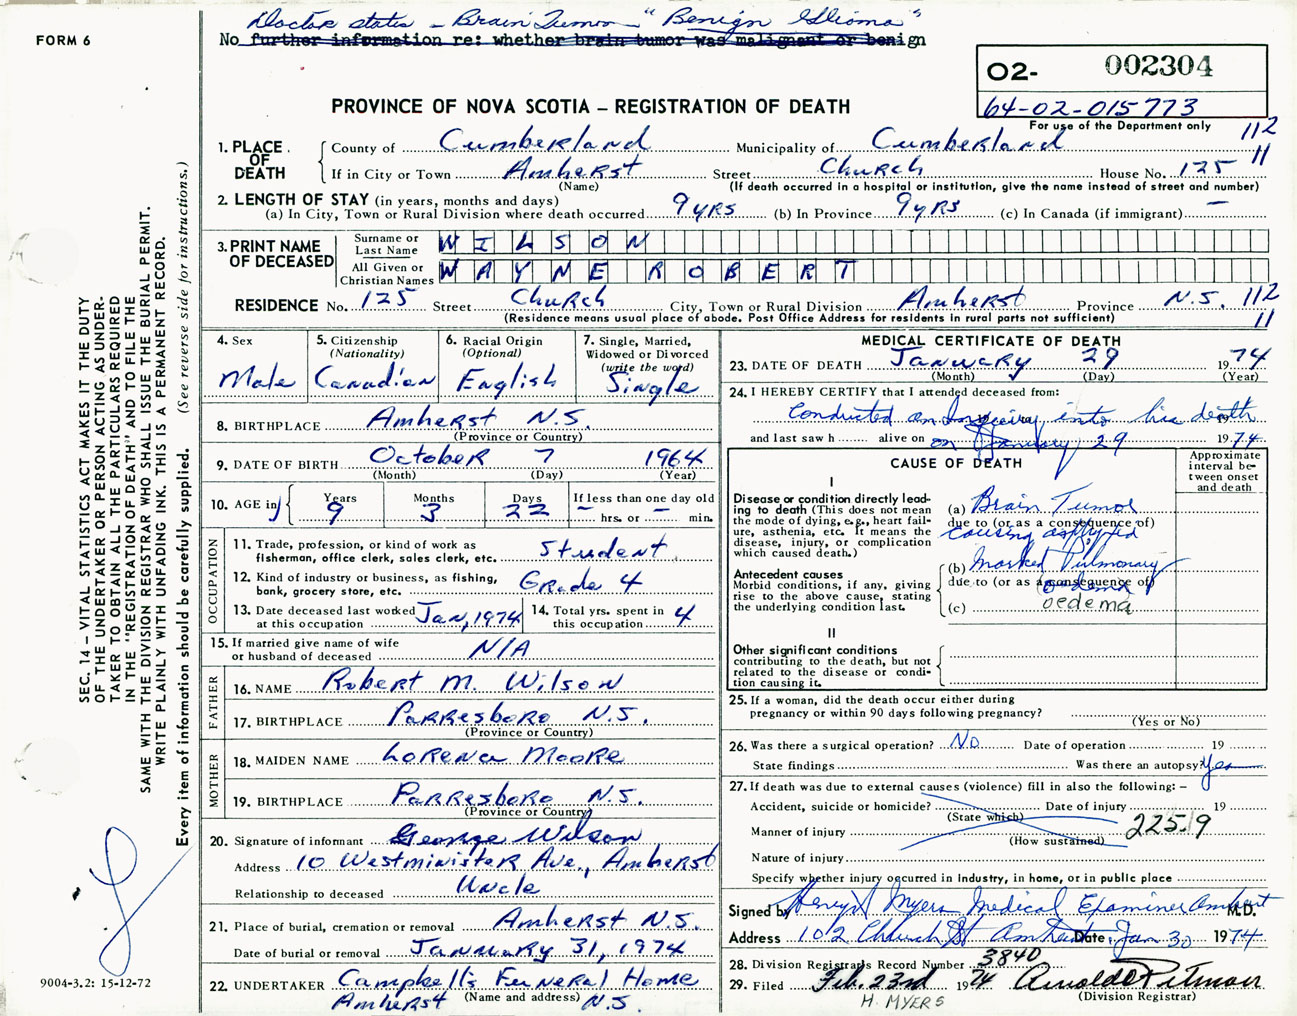 Doctor states - Brain Tumor - "Benign Glioma"
FORM 6
No further information re: whether brain tumor was malignant or benign
O2- 002304
64-02-015773
PROVINCE OF NOVA SCOTIA – REGISTRATION OF DEATH
For use of the Department only
112
11
1. PLACE OF DEATH
County of Cumberland Municipality of Cumberland
If in City or Town Amherst Street Church House No. 125
(Name) (If death occurred in a hospital or institution, give the name instead of street and number)
2. LENGTH OF STAY (in years, months and days)
(a) In City, Town or Rural Division where death occurred 9 yrs (b) In Province 9 yrs (c) In Canada (if immigrant) –
3. PRINT NAME OF DECEASED
Surname or Last Name WILSON
All Given or Christian Names WAYNE ROBERT
RESIDENCE No. 125 Street Church City, Town or Rural Division Amherst Province N.S. 112
(Residence means usual place of abode. Post Office Address for residents in rural parts not sufficient) 11
4. Sex
Male
5. Citizenship
(Nationality)
Canadian
6. Racial Origin
(Optional)
English
7. Single, Married,
Widowed or Divorced
(write the word)
Single
8. BIRTHPLACE Amherst N.S.
(Province or Country)
9. DATE OF BIRTH October 7 1964
(Month) (Day) (Year)
10. AGE in Years Months Days If less than one day old
9 3 22 – hrs. or – min.
OCCUPATION
11. Trade, profession, or kind of work as
fisherman, office clerk, sales clerk, etc. Student
12. Kind of industry or business, as fishing,
bank, grocery store, etc. Grade 4
13. Date deceased last worked
at this occupation Jan, 1974
14. Total yrs. spent in
this occupation 4
15. If married give name of wife
or husband of deceased N/A
FATHER
16. NAME Robert M. Wilson
17. BIRTHPLACE Parresboro N.S.
(Province or Country)
MOTHER
18. MAIDEN NAME Lorena Moore
19. BIRTHPLACE Parresboro N.S.
(Province or Country)
20. Signature of informant George Wilson
Address 10 Westminister Ave., Amherst
Relationship to deceased Uncle
21. Place of burial, cremation or removal Amherst N.S.
Date of burial or removal January 31, 1974
22. UNDERTAKER Campbell's Funeral Home
(Name and address)
Amherst N.S.
MEDICAL CERTIFICATE OF DEATH
23. DATE OF DEATH January 29 1974
(Month) (Day) (Year)
24. I HEREBY CERTIFY that I attended deceased from:
Conducted an Inquiry into his death
and last saw h alive on on January 29 1974
CAUSE OF DEATH
Approximate
interval be-
tween onset
and death
I
Disease or condition directly lead-
ing to death (This does not mean
the mode of dying, e.g., heart fail-
ure, asthenia, etc. It means the
disease, injury, or complication
which caused death.)
(a) Brain Tumor
due to (or as a consequence of)
causing
(b) Marked Pulmonary
due to (or as a consequence of)
(c) oedema
Antecedent causes
Morbid conditions, if any, giving
rise to the above cause, stating
the underlying condition last.
II
Other significant conditions
contributing to the death, but not
related to the disease or condi-
tion causing it.
25. If a woman, did the death occur either during
pregnancy or within 90 days following pregnancy?
(Yes or No)
26. Was there a surgical operation? No Date of operation 19
State findings Was there an autopsy? Yes
27. If death was due to external causes (violence) fill in also the following: –
Accident, suicide or homicide? Date of injury 19
(State which)
Manner of injury 225.9
(How sustained)
Nature of injury
Specify whether injury occurred in industry, in home, or in public place
Signed by Henry Myers Medical Examiner Amherst M.D.
Address 102 Church St Amherst Date Jan 30 1974
28. Division Registrar's Record Number 3840
29. Filed Feb. 23rd 1974 Arnold Pitman
H. MYERS (Division Registrar)
SEC. 14 – VITAL STATISTICS ACT MAKES IT THE DUTY
OF THE UNDERTAKER OR PERSON ACTING AS UNDER-
TAKER TO OBTAIN ALL THE PARTICULARS REQUIRED
IN THE "REGISTRATION OF DEATH" AND TO FILE THE
SAME WITH THE DIVISION REGISTRAR WHO SHALL ISSUE THE BURIAL PERMIT.
WRITE PLAINLY WITH UNFADING INK. THIS IS A PERMANENT RECORD.
Every item of information should be carefully supplied. (See reverse side for instructions.)
9004-3.2: 15-12-72